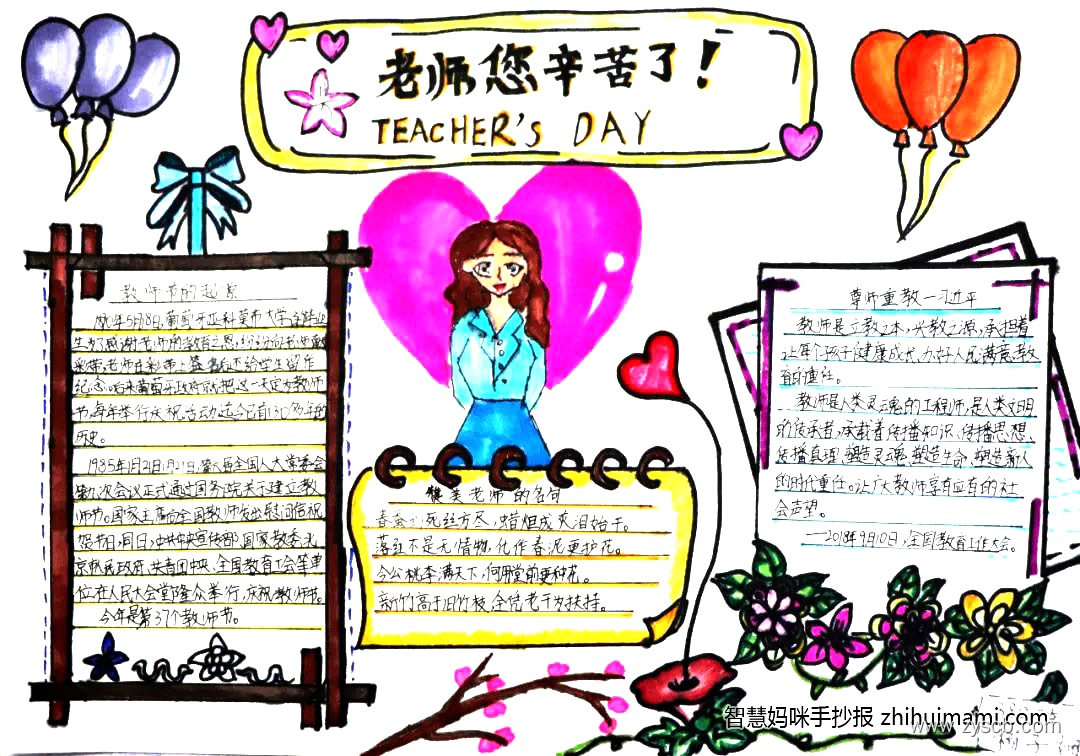 老师您辛苦了!
TEACHER'S DAY
教师节的起源
生为了感谢老师的教育之恩
彩带,老师在彩带上签名还给学生留作
纪念。后来葡萄牙政府就把这一天定为教师
节,每年举行庆祝活动,迄今已有130多年的
历史。
1985年1月21日,第六届全国人大常委会
第九次会议正式通过国务院关于建立教
师节。国家主席向全国教师发出慰问信祝
贺节日,同日,中共中央宣传部,国家教委,北
京市人民政府,共青团中央,全国教育工会等单
位在人民大会堂隆众举行,庆祝教师节。
今年是第37个教师节。
老师的名句
春蚕到死丝方尽,蜡炬成灰泪始干。
落红不是无情物,化作春泥更护花。
令公桃李满天下,何用堂前更种花。
新竹高于旧竹枝,全凭老干为扶持。
尊师重教—习近平
教师是立教之本,兴教之源,承担着
让每个孩子健康成长,办好人民满意教
育的重任。
教师是人类灵魂的工程师,是人类文明
的传承者,承载着传播知识,传播思想,
传播真理,塑造灵魂,塑造生命,塑造新人
的时代重任。让广大教师享有应有的社
会声望。
——2018年9月10日,全国教育工作大会。
智慧妈咪手抄报 zhihuimami.com
www.zyscb.com